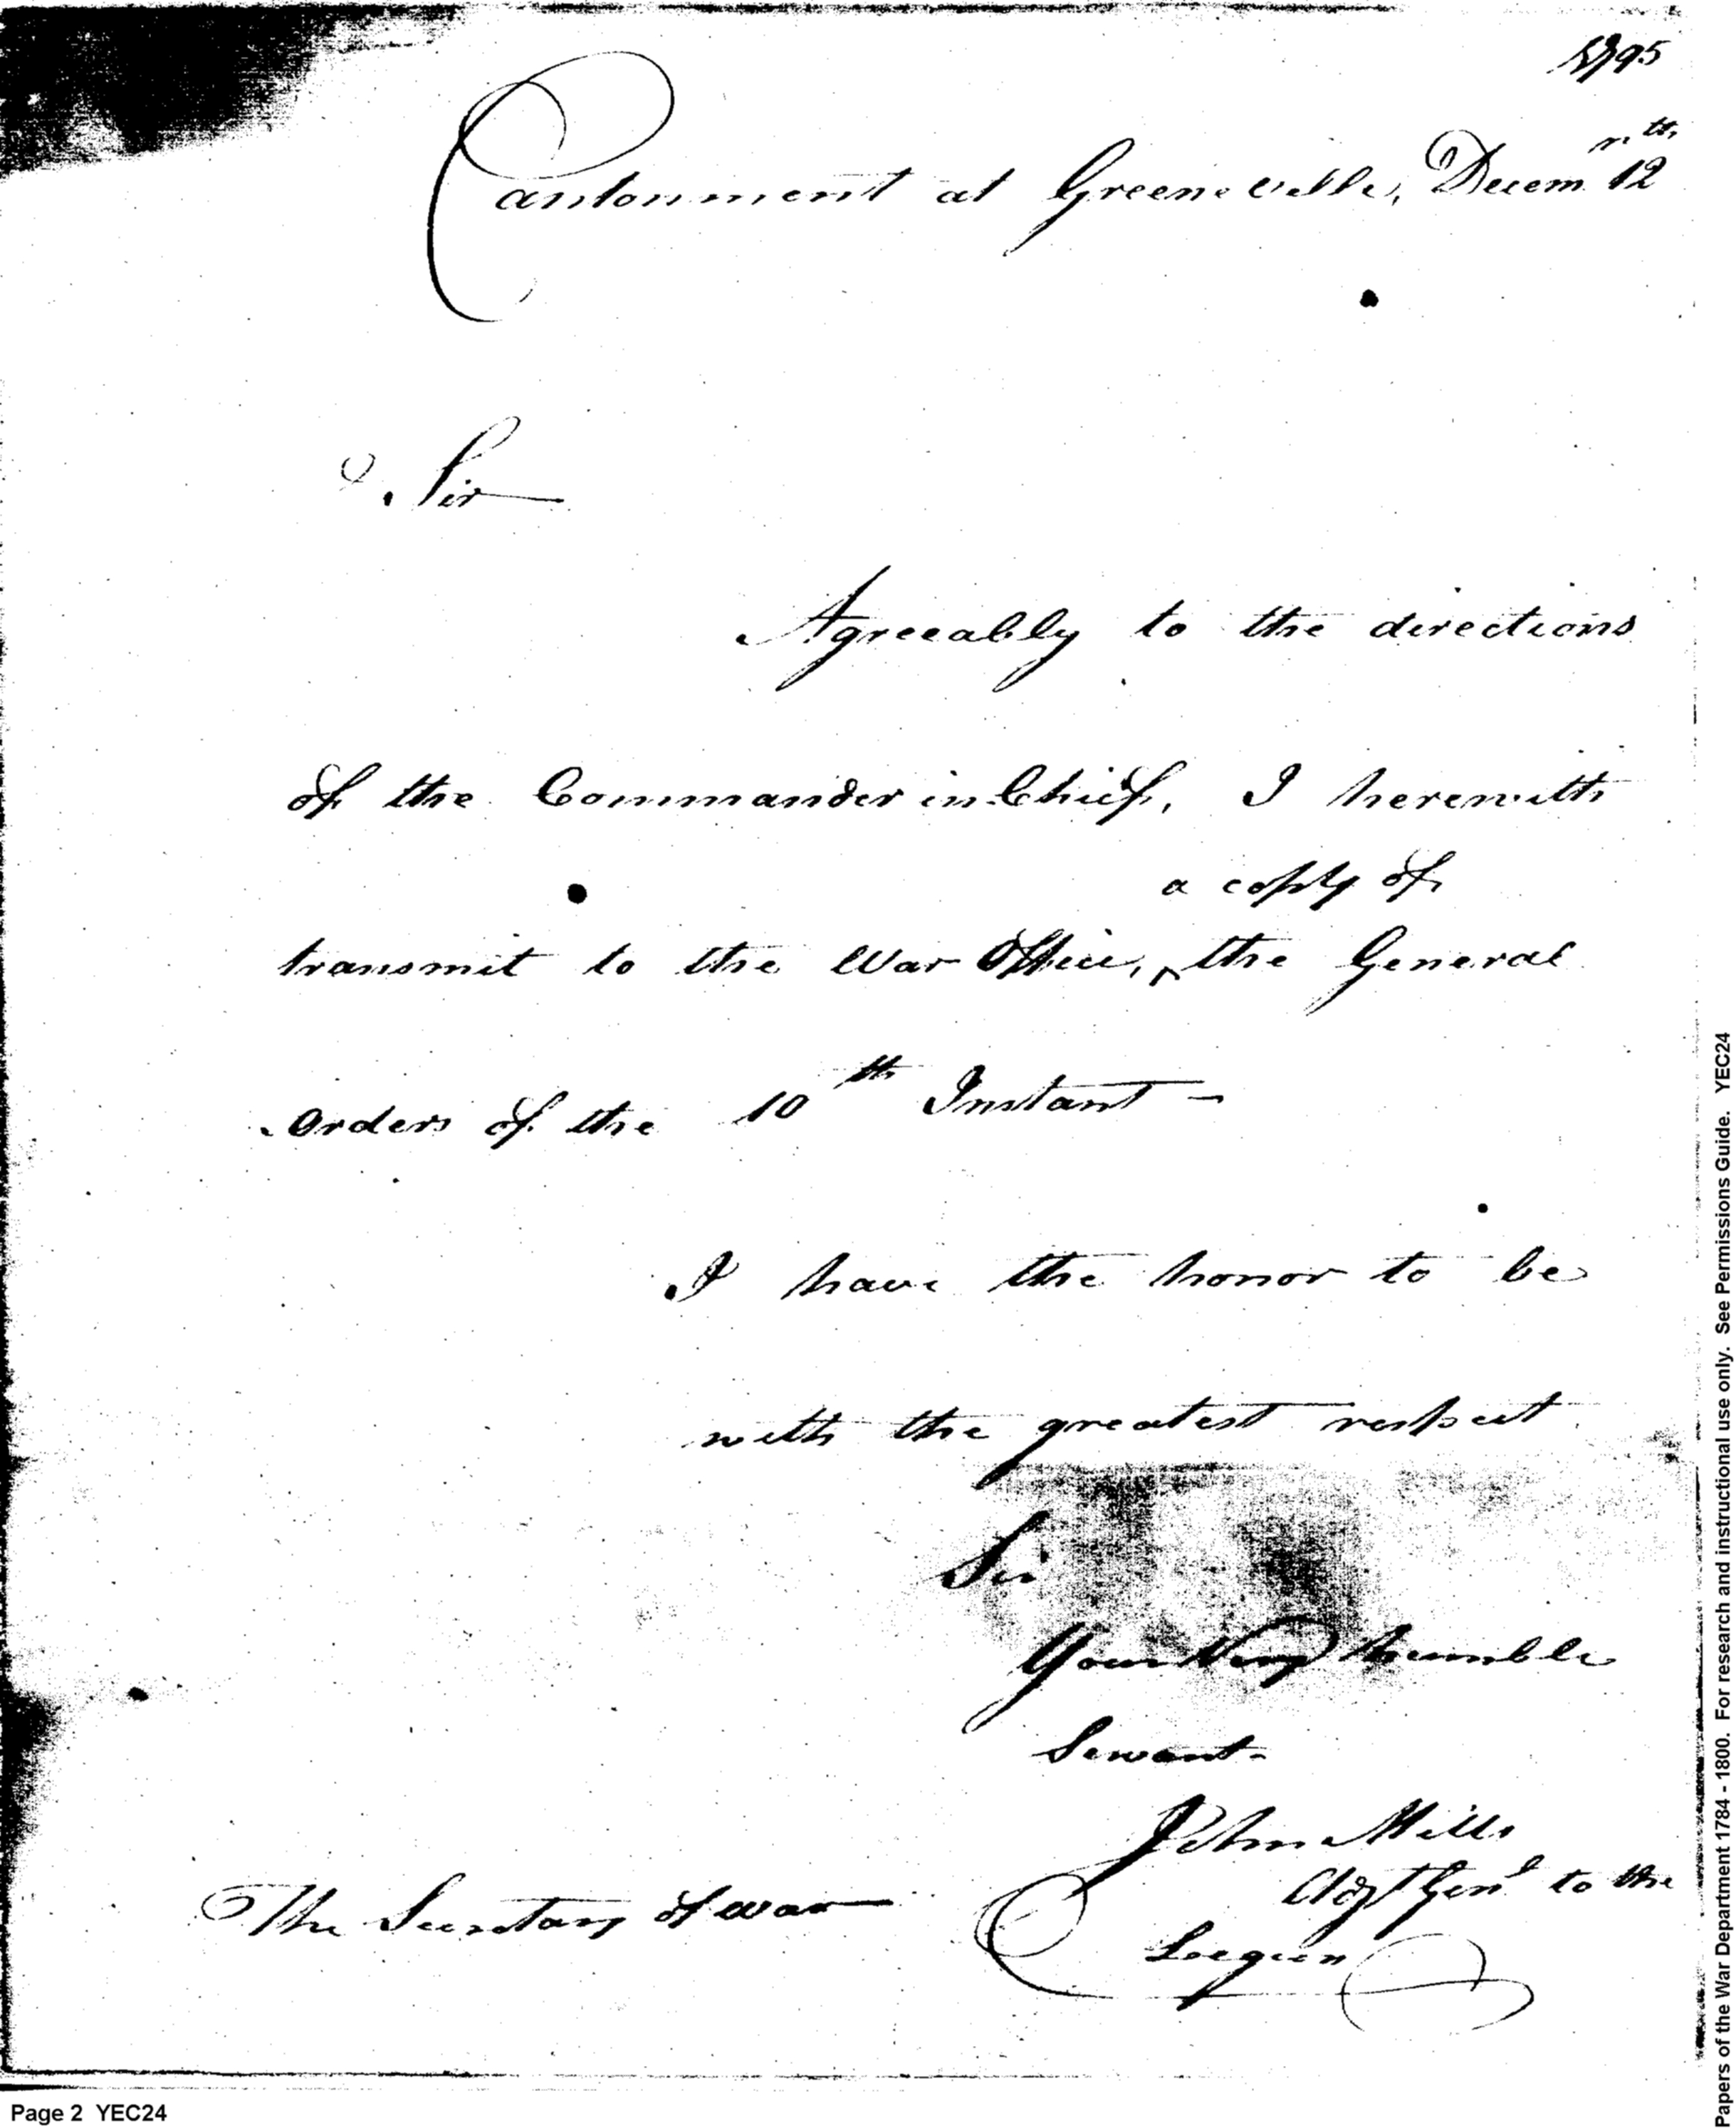 1795
Cantonment at Greeneville, Decem^r. 12^th.
Sir
Agreeably to the directions
of the Commander in Chief, I herewith
a copy of
transmit to the War Office, ^ the General
Orders of the 10^th Instant -
I have the honor to be
with the greatest respect
Sir
Your Very humble
Servant-
John Mills
Adj^t Gen^l to the
Leegion
The Secretary of War
Page 2 YEC24
Papers of the War Department 1784 - 1800. For research and instructional use only. See Permissions Guide. YEC24